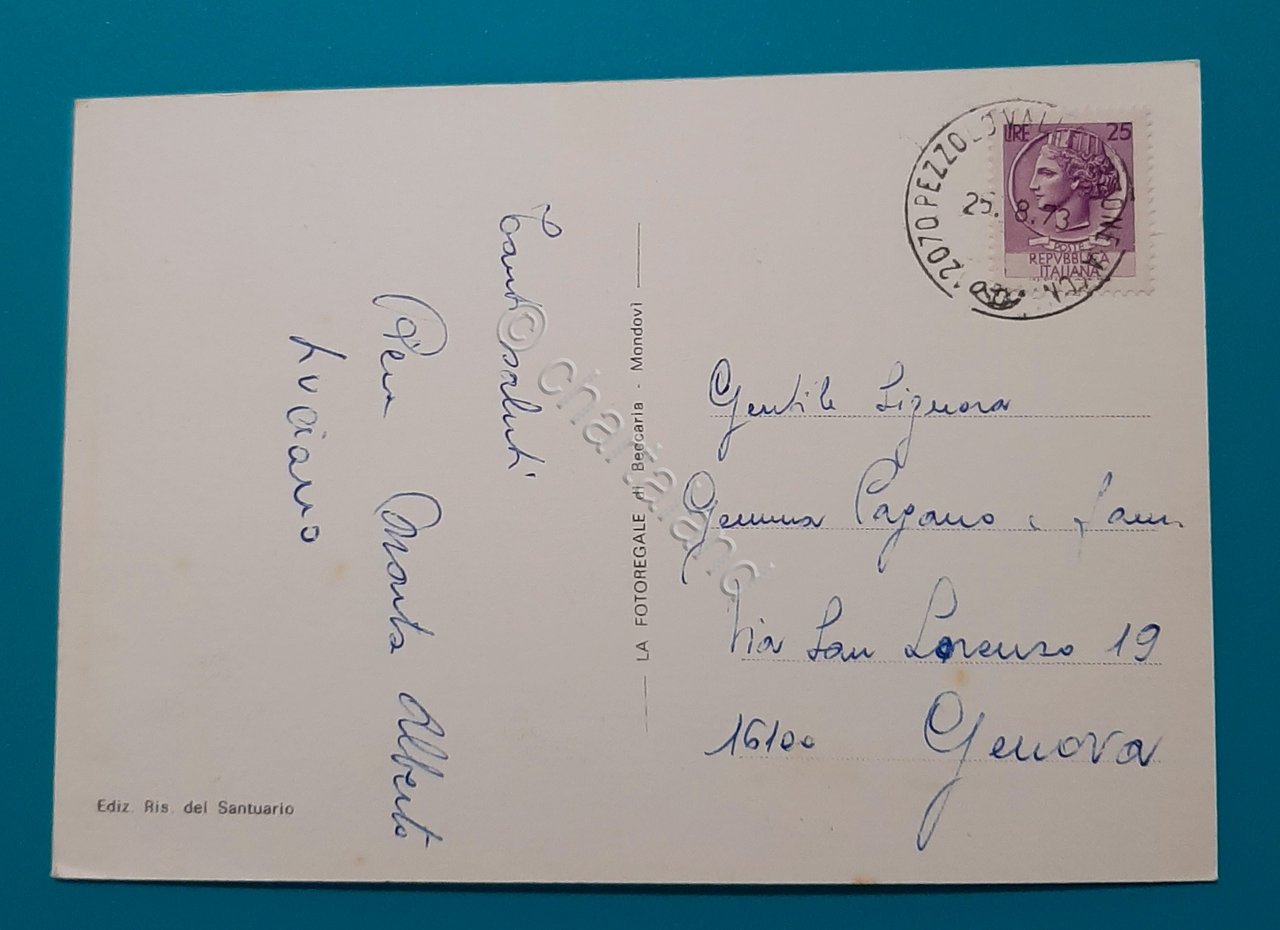 Tanti saluti
Piera Marta Alberto
Luciano
Ediz. Ris. del Santuario
LA FOTOREGALE di Beccaria - Mondovì
© chartaland
12070 PEZZOLO VALLE UZZONE (CN)
25. 8.73
LIRE 25
POSTE
REPVBBLICA
ITALIANA
Gentile Signora
Gemma Pagano e fam
Via San Lorenzo 19
16100 Genova